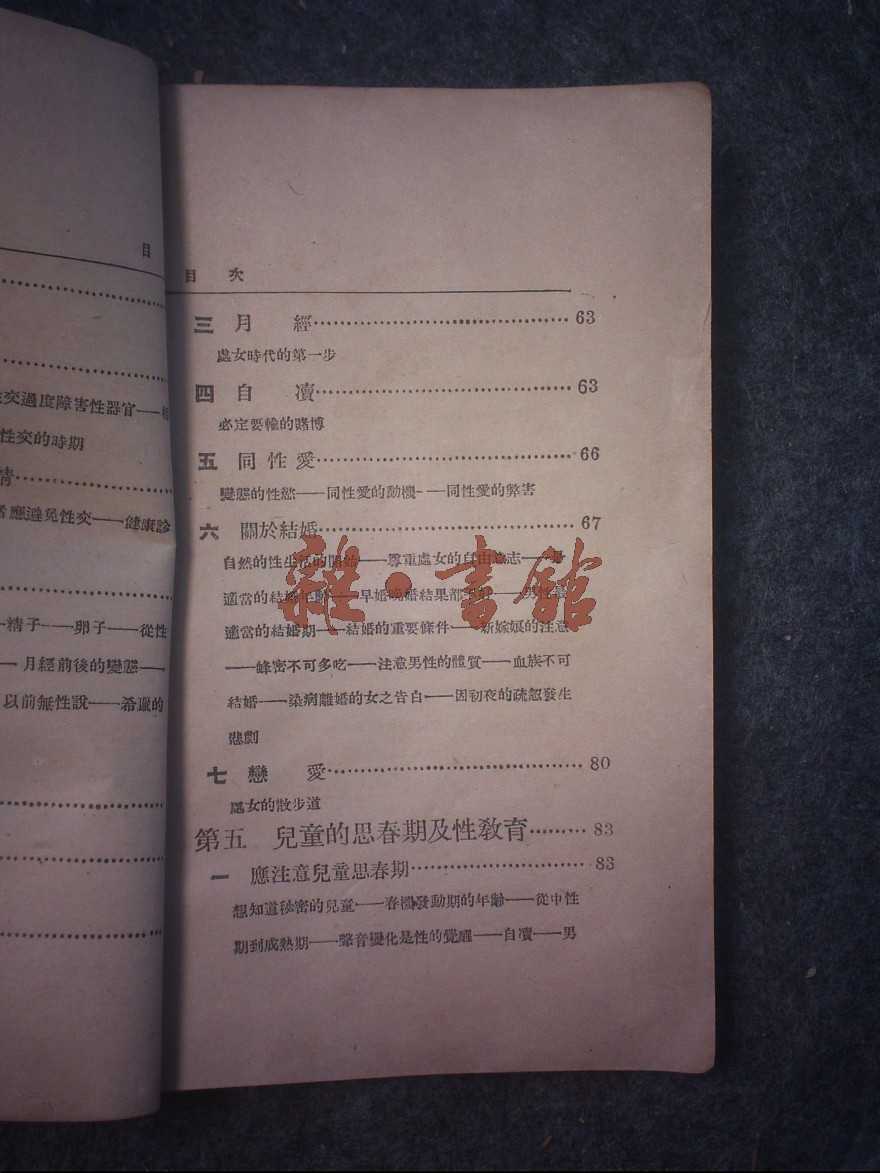 目
交過度障害性器官——
性交的時期
應避免性交——健康診
精子——卵子——從性
——月經前後的變態——
以前無性說——希臘的
目 次
三 月 經 63
處女時代的第一步
四 自 瀆 63
必定要輸的賭博
五 同性愛 66
變態的性慾——同性愛的動機——同性愛的弊害
六 關於結婚 67
自然的性生活的開始——尊重處女的自由意志——
適當的結婚年齡——早婚晚婚結果都不好——男性最
適當的結婚期——結婚的重要條件——新嫁娘的注意
——蜂密不可多吃——注意男性的體質——血族不可
結婚——染病離婚的女之告白——因初夜的疏忽發生
悲劇
七 戀 愛 80
處女的散步道
第五 兒童的思春期及性教育 83
一 應注意兒童思春期 83
想知道秘密的兒童——春機發動期的年齡——從中性
期到成熟期——聲音變化是性的覺醒——自瀆——男
雜·書館